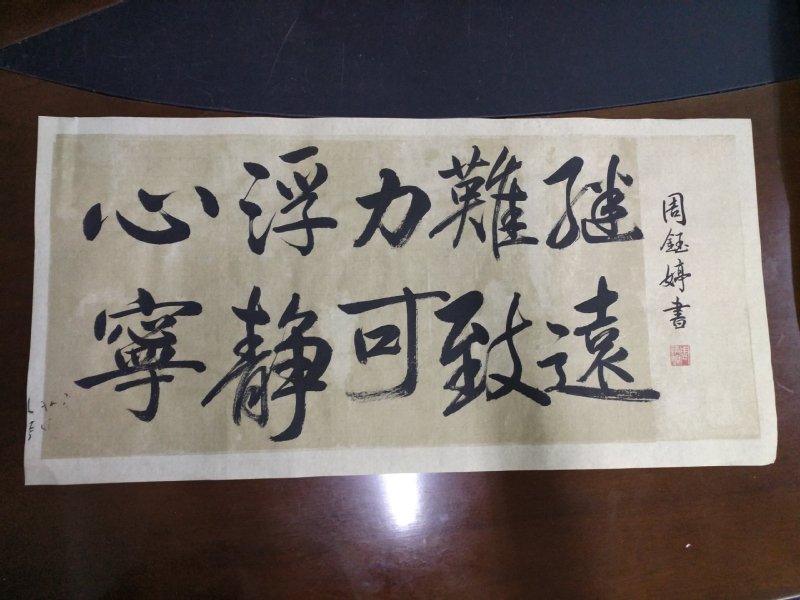 心浮力難继
寧静可致遠
周鈺婷書